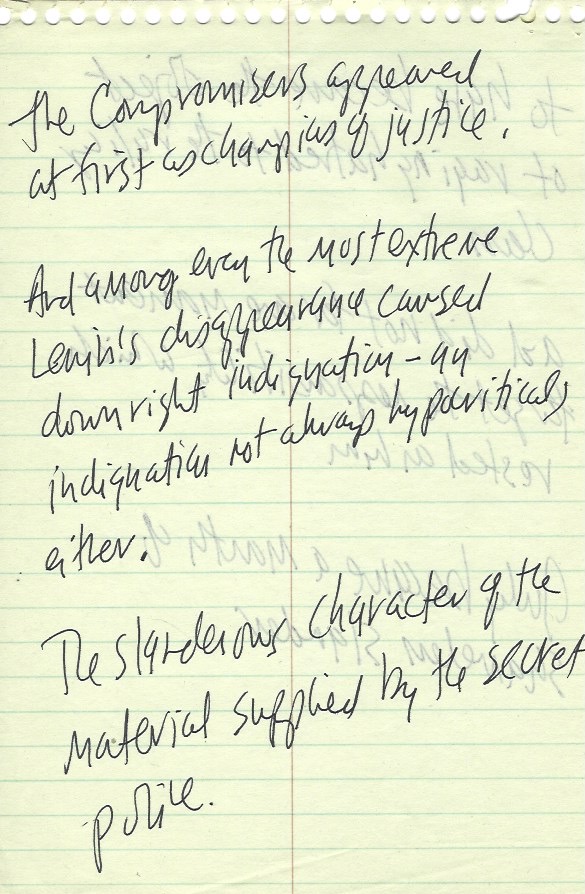 The Compromisers appeared
at first as champions of justice.
And among even the most extreme
Lenin's disappearance caused
downright indignation - an
indignation not always hypocritical,
either.
The slanderous character of the
material supplied by the secret
police.